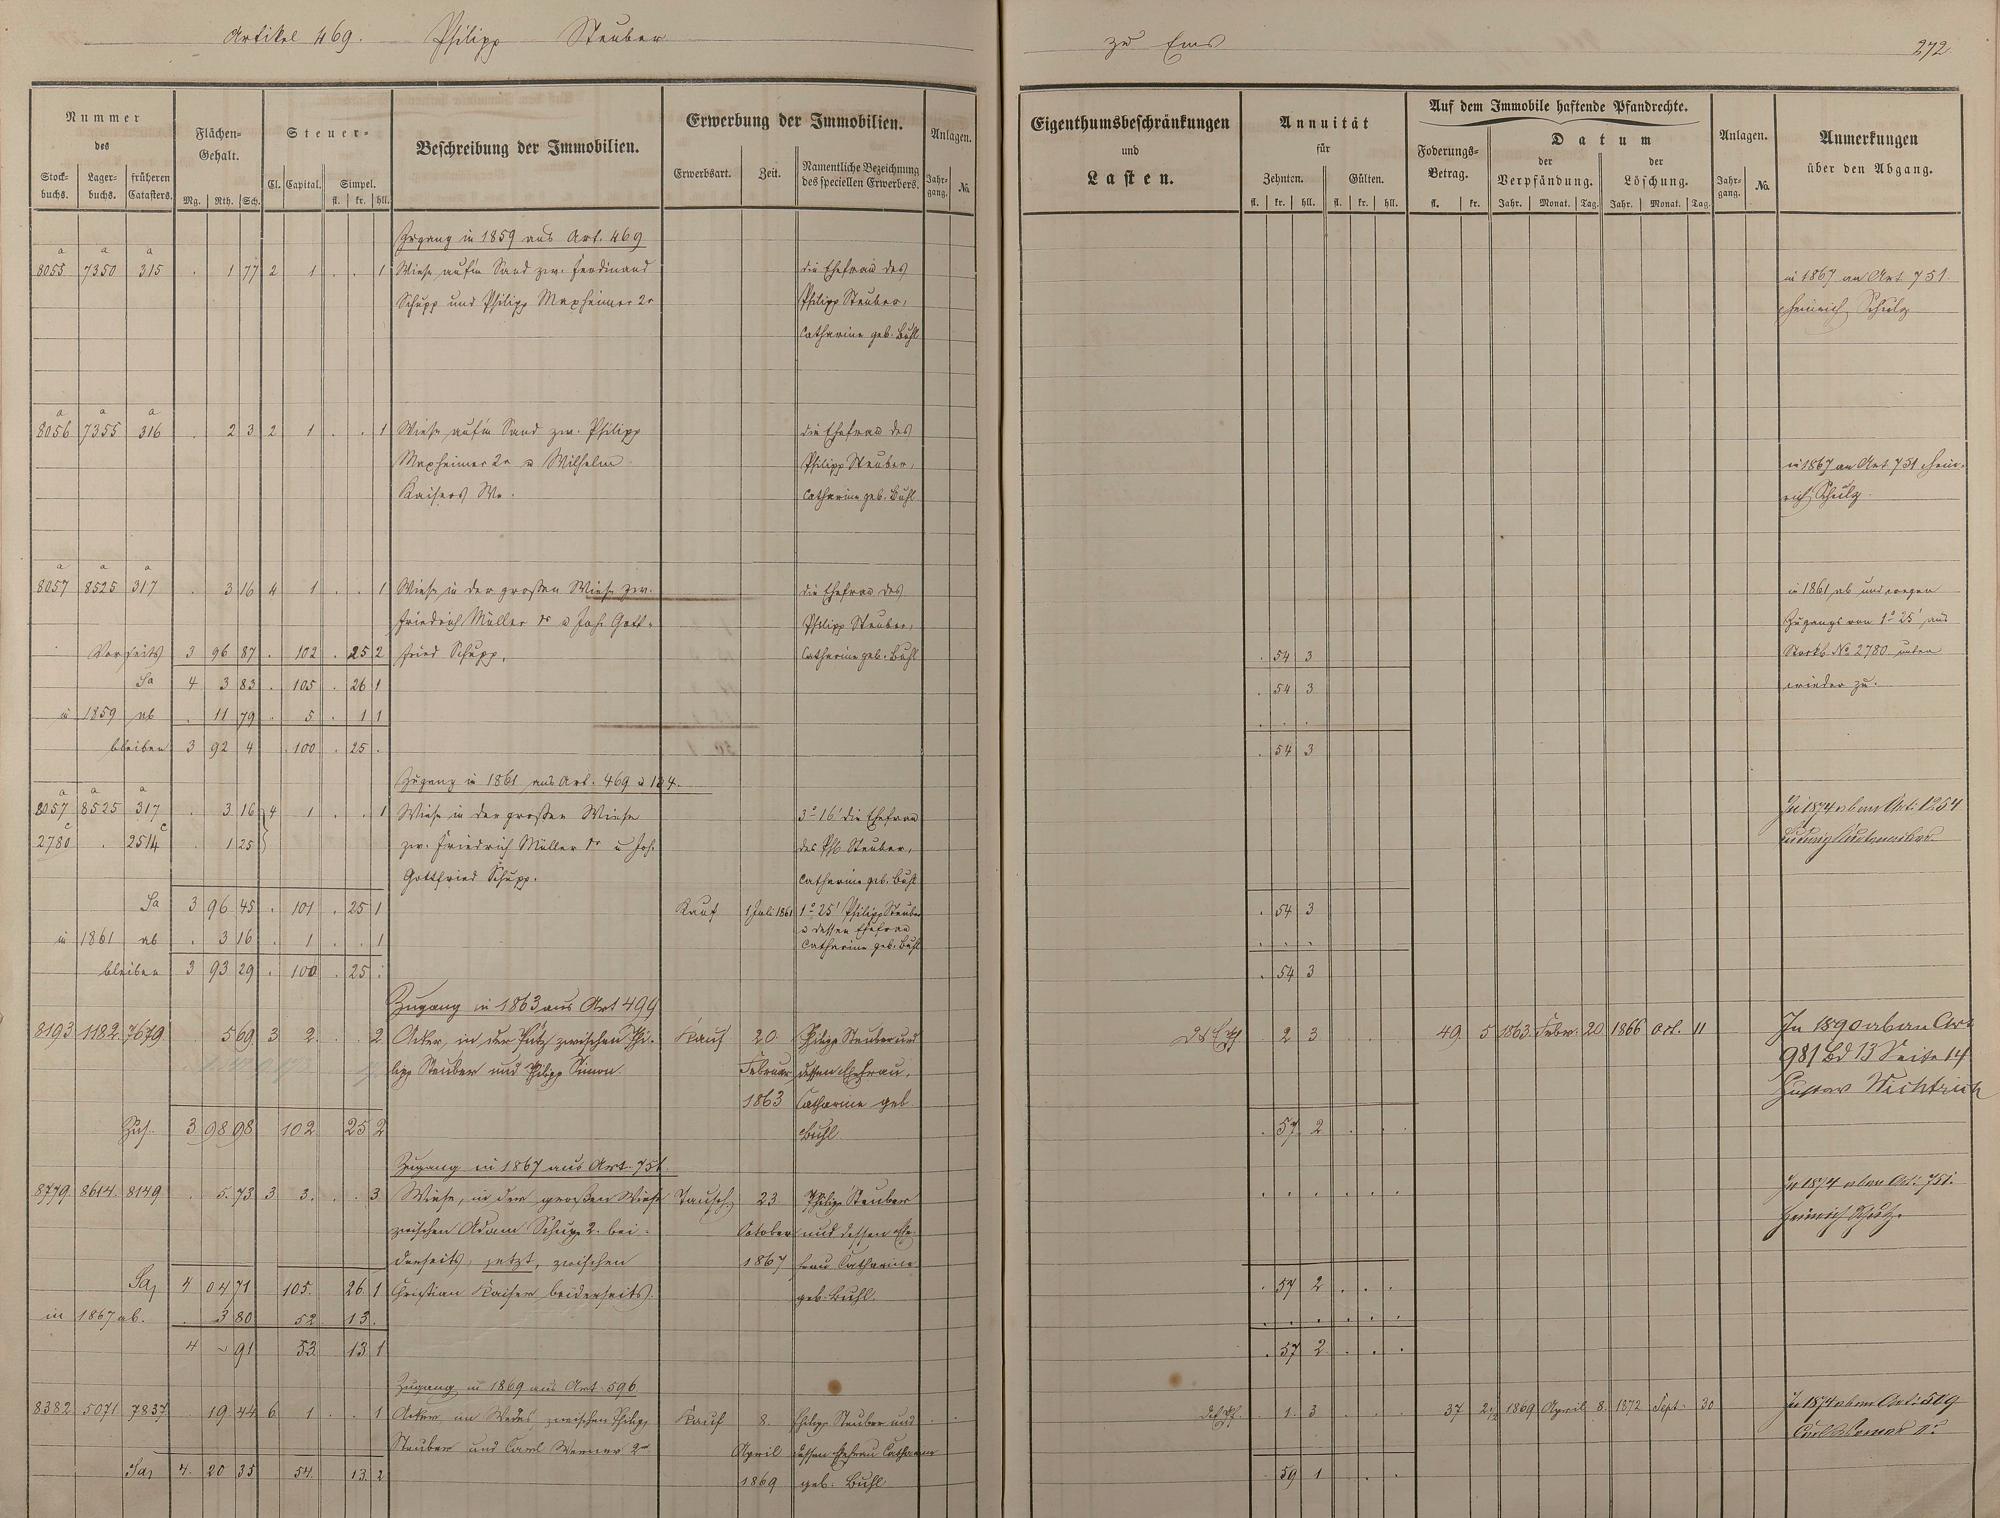 Artikel 469. Philipp Steuber
zu Ems 272.
Nummer des
Stock-buchs. Lager-buchs. früheren Catasters.
Flächen-Gehalt.
Mg. Rth. Sch.
Steuer-
Cl. Capital. Simpel.
fl. kr. hll.
Beschreibung der Immobilien.
Erwerbung der Immobilien.
Erwerbsart. Zeit. Namentliche Bezeichnung des speciellen Erwerbers.
Anlagen.
Jahr-gang. No.
Eigenthumsbeschränkungen
und
Lasten.
Annuität
für
Zehnten. Gülten.
fl. kr. hll. fl. kr. hll.
Auf dem Immobile haftende Pfandrechte.
Foderungs-Betrag.
fl. kr.
Datum
der Verpfändung. der Löschung.
Jahr. Monat. Tag. Jahr. Monat. Tag.
Anlagen.
Jahr-gang. No.
Anmerkungen
über den Abgang.
Zugang in 1859 aus Art. 469
a a a
8055 7350 315 . 1 77 2 1 . . 1 Wiese auf'm Sand zw. Ferdinand die Ehefrau des in 1867 an Art. 751
Schupp und Philipp Maxheimer 2r Philipp Steuber, Heinrich Schulz
Catharine geb. Buhl
a a a
8056 7355 316 . 2 3 2 1 . . 1 Wiese auf'm Sand zw. Philipp die Ehefrau des
Maxheimer 2r u Wilhelm Philipp Steuber, in 1867 an Art. 751 Hein-
Kaisers We. Catharine geb. Buhl rich Schulz
a a a
8057 8525 317 . 3 16 4 1 . . 1 Wiese in der großen Wiese zw. die Ehefrau des in 1861 ab und wegen
Friedrich Müller 1r u Joh. Gott- Philipp Steuber, Zugangs von 1° 25' aus
Vorseits 3 96 87 . 102 . 25 2 fried Schupp. Catharine geb. Buhl . 54 3 Stockb. No 2780 unten
Sa 4 3 83 . 105 . 26 1 . 54 3 wieder zu.
in 1859 ab . 11 79 . 5 . 1 1 . . .
bleiben 3 92 4 . 100 . 25 . . 54 3
Zugang in 1861 aus Art. 469 u 134.
a a a
8057 8525 317 . 3 16 4 1 . . 1 Wiese in der großen Wiese 3° 16' die Ehefrau In 1874 ab an Art: 1254
2780 c . 2514 c . 1 25 zw. Friedrich Müller 1r u Joh. des Ph. Steuber, Ludwig
Gottfried Schupp. Catharine geb. Buhl
Sa 3 96 45 . 101 . 25 1 Kauf 1 Juli 1861 1° 25' Philipp Steuber . 54 3
u dessen Ehefrau
in 1861 ab . 3 16 . 1 . . 1 Catharine geb. Buhl . . . .
bleiben 3 93 29 . 100 . 25 . . 54 3
Zugang in 1863 aus Art 499
8193 1182 7679 5 69 3 2 . . 2 Acker, in der Pütz zwischen Phi- Kauf 20 Philipp Steuber und 2 3 49 5 1863 Febr. 20 1866 Oct. 11 In 1890 ab an Art
lipp Steuber und Philipp Simon. Februar dessen Ehefrau, 981 Bd 13 Seite 14
1863 Catharine geb. Gustav
Zus. 3 98 98 102 25 2 Buhl. . 57 2 . . .
Zugang in 1867 aus Art. 751.
8779 8614 8149 . 5 73 3 3. . . 3 Wiese, in der großen Wiese Tausch. 23 Philipp Steuber . . . . . . In 1874 ab an Art: 751:
zwischen Adam Schupp 2. bei- October und dessen Ehe- Heinrich Schulz.
derseits, jetzt, zwischen 1867 frau Catharine
Sa, 4 04 71 105. 26 1 Christian Kaiser beiderseits. geb. Buhl. . 57 2 . . .
in 1867 ab. . 3 80 52 13 . . . . . . .
4 ~ 91 53 13 1 . 57 2 . . .
Zugang in 1869 aus Art. 596
8382 5071 7837 . 19 44 6 1 . . 1 Acker, im Wedes, zwischen Philipp Kauf 8. Philipp Steuber und . 1. 3 37 2 1/2 1869 April 8. 1872 Sept. 30 In 1874 ab an Art: 519
Steuber und Carl Werner 2r April dessen Ehefrau Catharine Carl Werner 2r
Sa, 4. 20 35 54. 13. 2 1869 geb. Buhl. 59 1 . . .